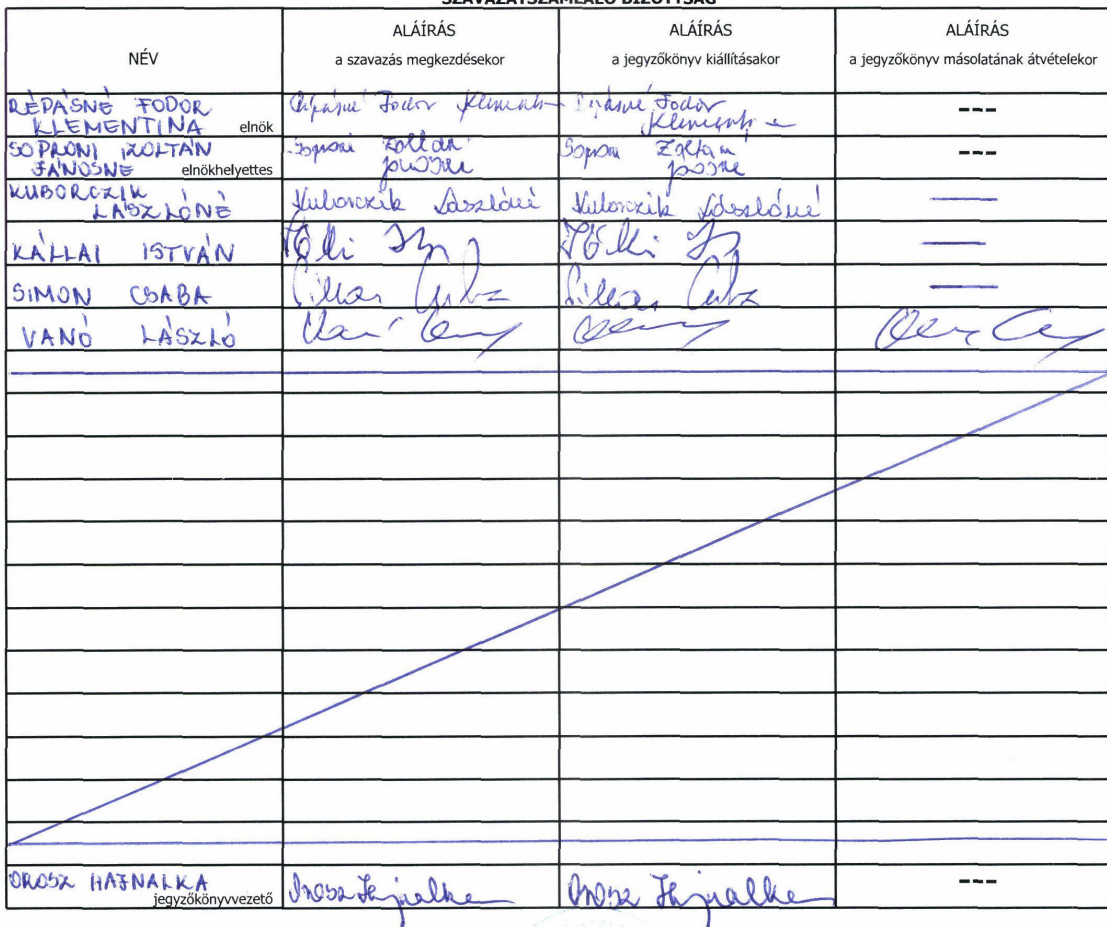 SZAVAZATSZÁMLÁLÓ BIZOTTSÁG
NÉV
ALÁÍRÁS
a szavazás megkezdésekor
ALÁÍRÁS
a jegyzőkönyv kiállításakor
ALÁÍRÁS
a jegyzőkönyv másolatának átvételekor
RÉPÁSNÉ FODOR
KLEMENTINA elnök
Répásné Fodor
Fodor
---
SOPRONI ZOLTÁN
JÁNOSNÉ elnökhelyettes
Soproni Zoltán
Soproni Zoltán
---
KUBORCZIK
LÁSZLÓNÉ
Kuborczik Lászlóné
Kuborczik Lászlóné
KÁLLAI ISTVÁN
SIMON CSABA
VANÓ LÁSZLÓ
OROSZ HAJNALKA
jegyzőkönyvvezető
Orosz Hajnalka
Orosz Hajnalka
---